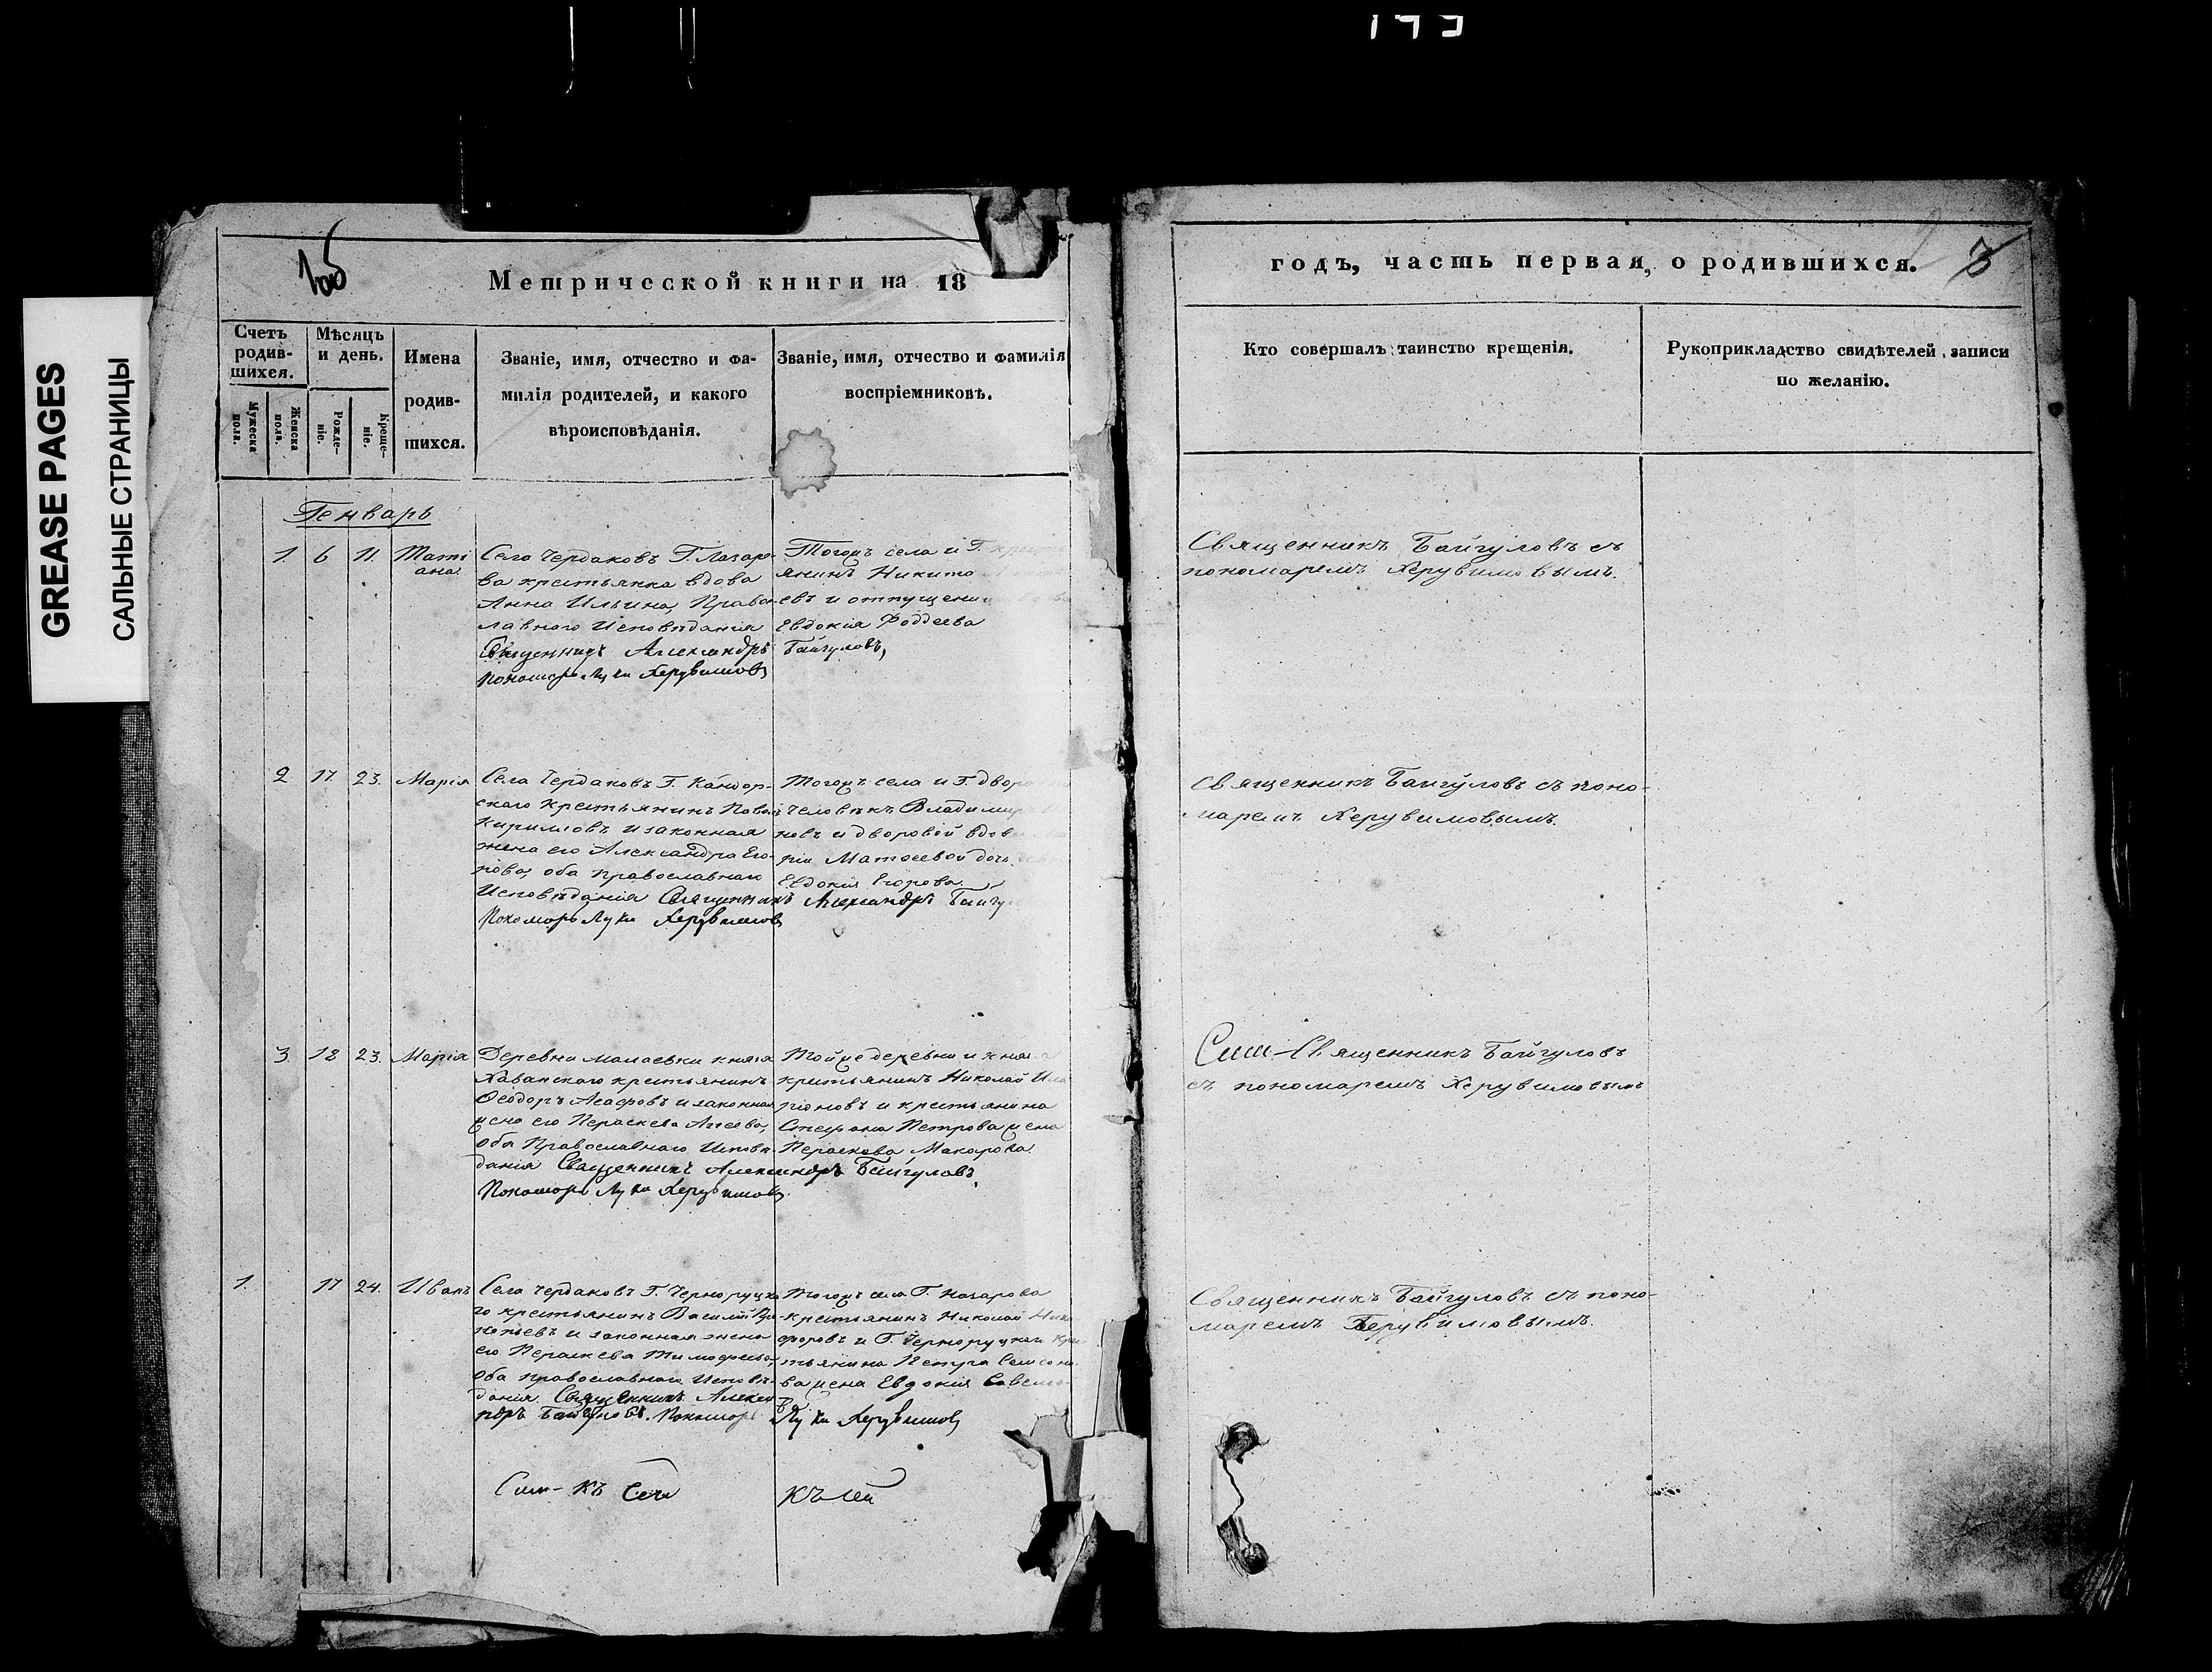 GREASE PAGES
САЛЬНЫЕ СТРАНИЦЫ
Метрической книги на 18
годъ, часть первая, о родившихся.
3
Счетъ родив-шихся.
Мужеска пола.
Женска пола.
Мѣсяцъ и день.
Рожде-ніе.
Креще-ніе.
Имена
родив-
шихся.
Званіе, имя, отчество и фа-
милія родителей, и какого
вѣроисповѣданія.
Званіе, имя, отчество и фамилія
воспріемниковъ.
Кто совершалъ таинство крещенія.
Рукоприкладство свидѣтелей записи
по желанію.
Генварь
1. 6 11. Татіана
Села Чердаковъ Г. Лазаре-
ва крестьянка вдова
Анна Ильина, Правос-
лавнаго Исповѣданія
Священникъ Александръ Байгуловъ,
Пономарь Лука Херувимовъ
Тогожъ села и Г.
янинъ Никита
евъ и отпущени
Евдокія Фаддеева
Священникъ Байгуловъ съ
пономаремъ Херувимовымъ.
2 17 23. Марія
Села Чердаковъ Г. Кандор-
скаго Крестьянинъ
Кириловъ и законная
жена его Александра Его-
рова, оба православнаго
Исповѣданія Священникъ Александръ
Пономарь Лука Херувимовъ
Тогожъ села и Г. двор
человѣкъ Владимир
новъ и дворовой вдов
рьи Матвеевой дочь
Евдокія Егорова.
Священникъ Байгуловъ съ поно-
маремъ Херувимовымъ.
3. 18 23. Марія
Деревни Малаевки князя
Хованскаго крестьянинъ
Ѳеодоръ и законная
жена его Параскева
оба Православнаго Исповѣ-
данія Священникъ Александръ Байгуловъ,
Пономарь Лука Херувимовъ.
Тойже деревни и княз
крестьянинъ Николай Ила
ріоновъ и крестьянина
Стефана Петрова жена
Параскева Макарова.
Священникъ Байгуловъ
съ пономаремъ Херувимовымъ
1. 17 24. Иванъ
Села Чердаковъ Г. Черноруцка
го крестьянинъ Василій Про
копьевъ и законная жена
его Параскева Тимофеева,
оба православнаго Исповѣ-
данія. Священникъ Алексан
дръ Байгуловъ. Пономарь Лука Херувимовъ
Тогожъ села Г. Назарова
крестьянинъ Николай Ники
форовъ и Г. Черноруцкаго крес
тьянина Петра Самсоно-
ва жена Евдокія
Священникъ Байгуловъ съ поно-
маремъ Херувимовымъ.